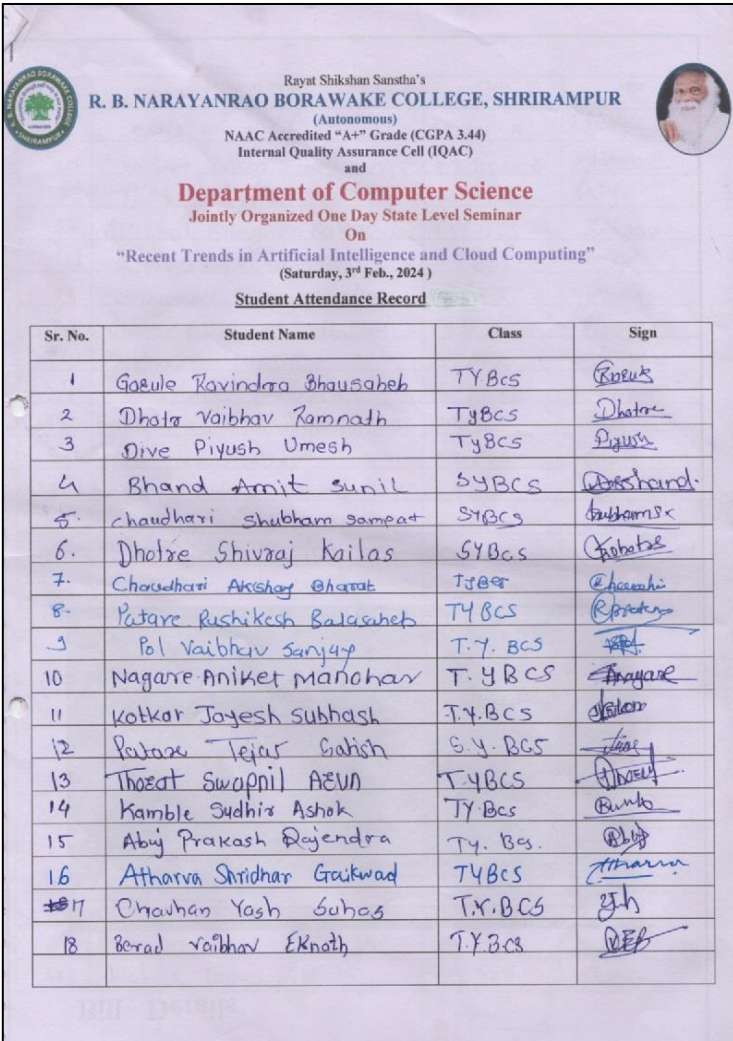 Rayat Shikshan Sanstha's
R. B. NARAYANRAO BORAWAKE COLLEGE, SHRIRAMPUR
(Autonomous)
NAAC Accredited "A+" Grade (CGPA 3.44)
Internal Quality Assurance Cell (IQAC)
and
Department of Computer Science
Jointly Organized One Day State Level Seminar
On
"Recent Trends in Artificial Intelligence and Cloud Computing"
(Saturday, 3rd Feb., 2024 )
Student Attendance Record
Sr. No. Student Name Class Sign
1 Gosule Ravindora Bhausaheb TYBCS
2 Dhotr Vaibhav Ramnath TYBCS Dhotre
3 Dive Piyush Umesh TyBCS Piyush
4 Bhand Amit Sunil SYBCS
5. Chaudhari Shubham Sampat SYBCS
6. Dhotre Shivraj Kailas SYBCS
7. Choudhari Akshay Bharat
8. Patare Rushikesh Balasaheb TYBCS
9 Pol Vaibhav Sanjay T.Y. BCS
10 Nagare Aniket Manohar T.YBCS
11 Kotkar Jayesh Subhash T.Y.BCS
12 Patare Tejas Satish S.Y. BCS
13 Thorat Swapnil T.YBCS
14 Kamble Sudhir Ashok TY.BCS
15 Abuj Prakash Rajendra Ty. Bcs.
16 Atharva Shridhar Gaikwad TYBCS Atharva
17 Chavhan Yash Suhas T.Y.BCS
18 Berad Vaibhav Eknath T.Y.BCS